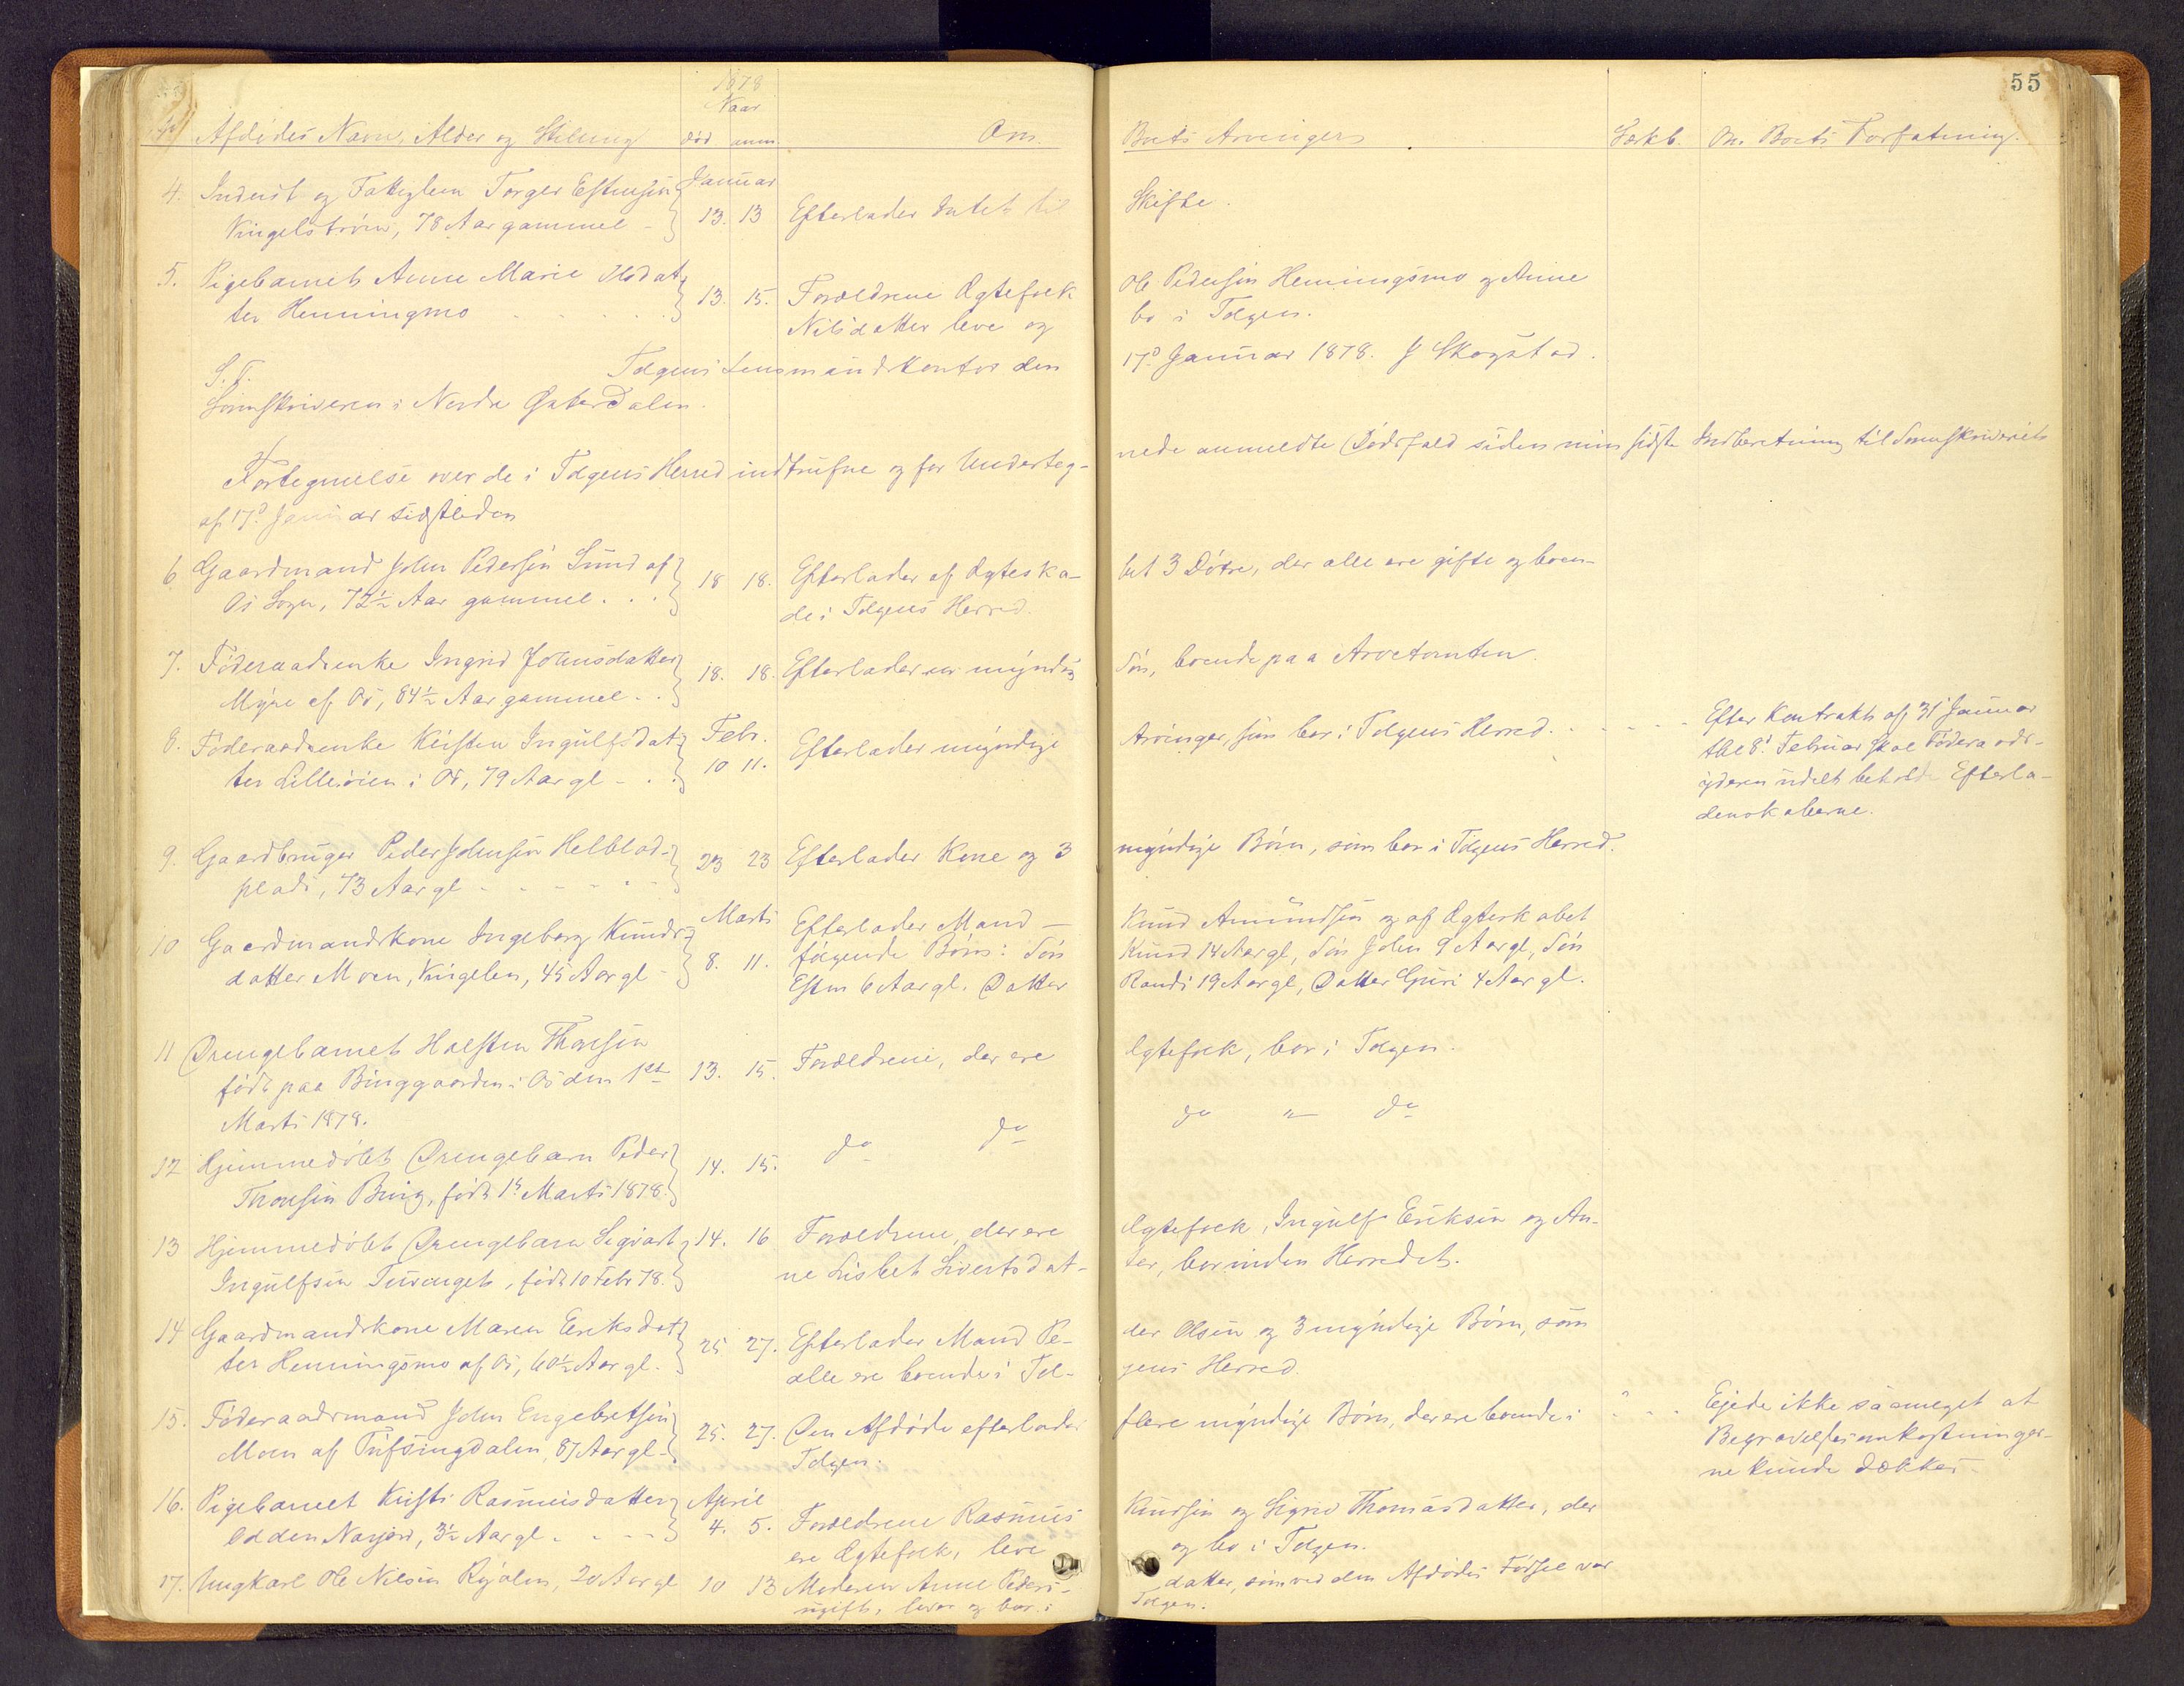 55
1878
Naar
Afdødes Navn, Alder og Stilling død anm. Om Boets Arvinger Særkb. Om Boets Forfatning.
Januar
4. Inderst og Fattiglem Torger Estensen 13. 13 Efterlader Intet til Skifte.
Vingelstrøen, 78 Aar gammel
5. Pigebarnet Anne Marie Olsdat- 13. 15. Forældrene Ægtefolk Ole Pedersen Henningsmo og Anne
ter Henningmo Nilsdatter leve og bo i Tolgen.
S. T. Tolgens Lensmandskontor den 17d Januar 1878. J Skogstad.
Sorenskriveren i Nordre Østerdalen.
Fortegnelse over de i Tolgens Herred indtrufne og for Underteg- nede anmeldte Dødsfald siden min sidste Indberetning til Sorenskriveriet
af 17d Januar sidstleden
6 Gaardmand John Pedersen Sund af 18 18. Efterlader af Ægteska- bet 3 Døtre, der alle ere gifte og boen-
Os Sogn, 72½ Aar gammel . . . de i Tolgens Herred.
7. Föderaadsenke Ingrid Johnsdatter 18. 18. Efterlader en myndig Søn, boende paa Arvetomten.
Myre af Os, 84½ Aar gammel . .
8. Föderaadsenke Kirsten Ingulfsdat- Febr. 10 11. Efterlader myndige Arvinger, som bor i Tolgens Herred. Efter Kontrakt af 31 Januar
ter Lillesøien i Os, 79 Aar gl tbl 8. Februar skal Födera ads-
yderen udelt beholde Efterla-
denskaberne.
9. Gaardbruger Peder Johnsen Helblad- 23 23 Efterlader Kone og 3 myndige Børn, som bor i Tolgens Herred.
plads, 73 Aar gl
10 Gaardmandskone Ingeborg Knuds- Marts Efterlader Mand — Knud Amundsen og af Ægteskabet
datter Moen, Vingelen, 45 Aar gl 8. 11. følgende Børn: Søn Knud 14 Aar gl, Søn John 9 Aar gl, Søn
Esten 6 Aar gl. Datter Randi 19 Aar gl, Datter Guri 4 Aar gl.
11 Drengebarnet Halsten Thoresen
født paa Binggaarden i Os den 1st 13. 15. Forældrene, der ere Ægtefolk, bor i Tolgen.
Marts 1878.
12 Hjemmedøbt Drengebarn Peder 14. 15. do do do " do
Thoresen Bing, født 1st Marts 1878.
13 Hjemmedøbt Drengebarn Sigvart 14. 16 Forældrene, der ere Ægtefolk, Ingulf Eriksen og An-
Ingulfsen, født 10 Febr 78. ne Lisbet Sivertsdat- ter, bor inden Herredet.
14 Gaardmandskone Maren Eriksdat- 25 27. Efterlader Mand Pe- der Olsen og 3 myndige Børn, som
ter Henningsmo af Os, 60½ Aar gl. alle ere boende i Tol- gens Herred
15. Föderaadsmand John Engebretsen 25. 27. Den Afdøde efterlader flere myndige Børn, der ere boende i Ejede ikke saameget at
Moen af Tufsingdalen 87 Aar gl Tolgen. Begravelsesomkostninger-
ne kunde dækkes
16. Pigebarnet Kirsti Rasmusdatter April 4. 5. Forældrene Rasmus Knudsen og Sigrid Thomasdatter, der
Odden Narjord, 3½ Aar gl ere Ægtefolk, leve og bo i Tolgen.
17. Ungkarl Ole Nilsen Røjalen, 20 Aar gl 10 13 Moderen Anne Peders- datter, som ved den Afdødes Fødsel var
ugift, lever og bor i Tolgen.